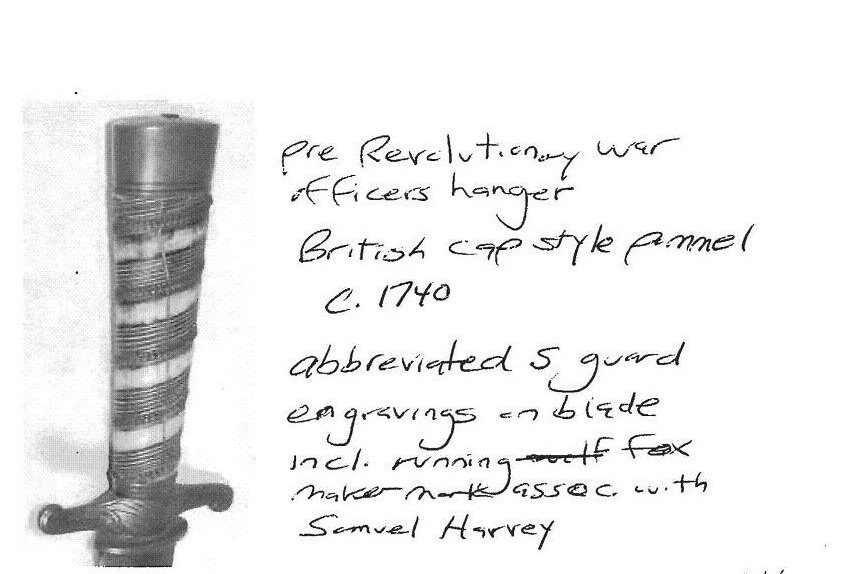 pre Revolutionary war
officers hanger
British cap style pommel
C. 1740
abbreviated S guard
engravings on blade
incl. running wolf fox
maker mark assoc. with
Samuel Harvey